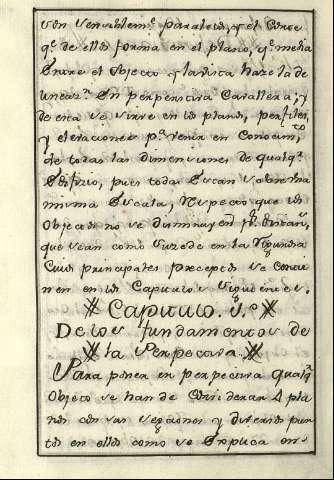 son sensiblem.te paralelos, y el Corte
q.e de ellos forma en el plano, q.e media
Entre el Objecto y la vista haze la de
lineaz.n En perpectiva Cavallera, y
de esta se sirve en los planos, perfiles,
y elevaciones p.a venir en Conocim.to
de todas las dimensiones de qualq.r
Edifizio, pues todas Estan sobre una
misma Escala, Respecto que los
Objectos no se disminuyen p.r distan.a
que sean como suzede en la Segunda
Cuios prinzipales preceptos se contie
nen en los Capitulos Siguientes.
Capitulo. 1.o
De los fundamentos de
la Perpectiva.
Para poner en perpectiva qualq.r
Objeto se han de Considerar 4 pla
nos con sus secziones y diversos pun
tos en ellos como se Explica en